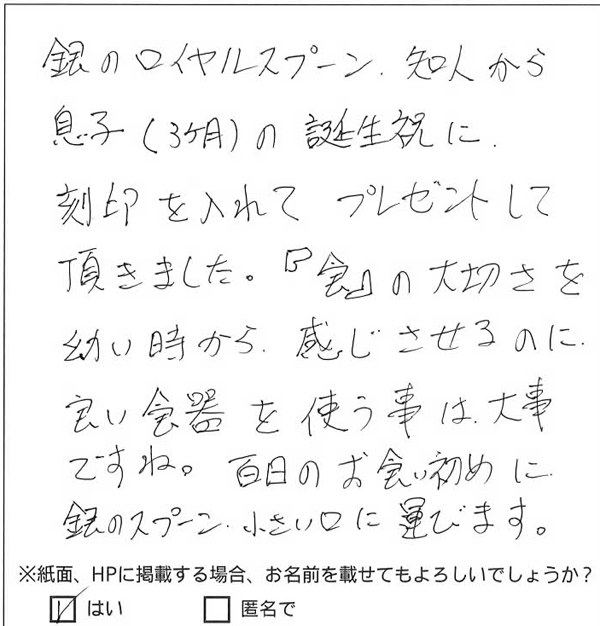 銀のロイヤルスプーン、知人から
息子(3ヶ月)の誕生祝に、
刻印を入れて プレゼントして
頂きました。『食』の大切さを
幼い時から、感じさせるのに、
良い食器を使う事は、大事
ですね。百日のお食い初めに、
銀のスプーン、小さい口に運びます。
※紙面、HPに掲載する場合、お名前を載せてもよろしいでしょうか?
☑ はい □ 匿名で